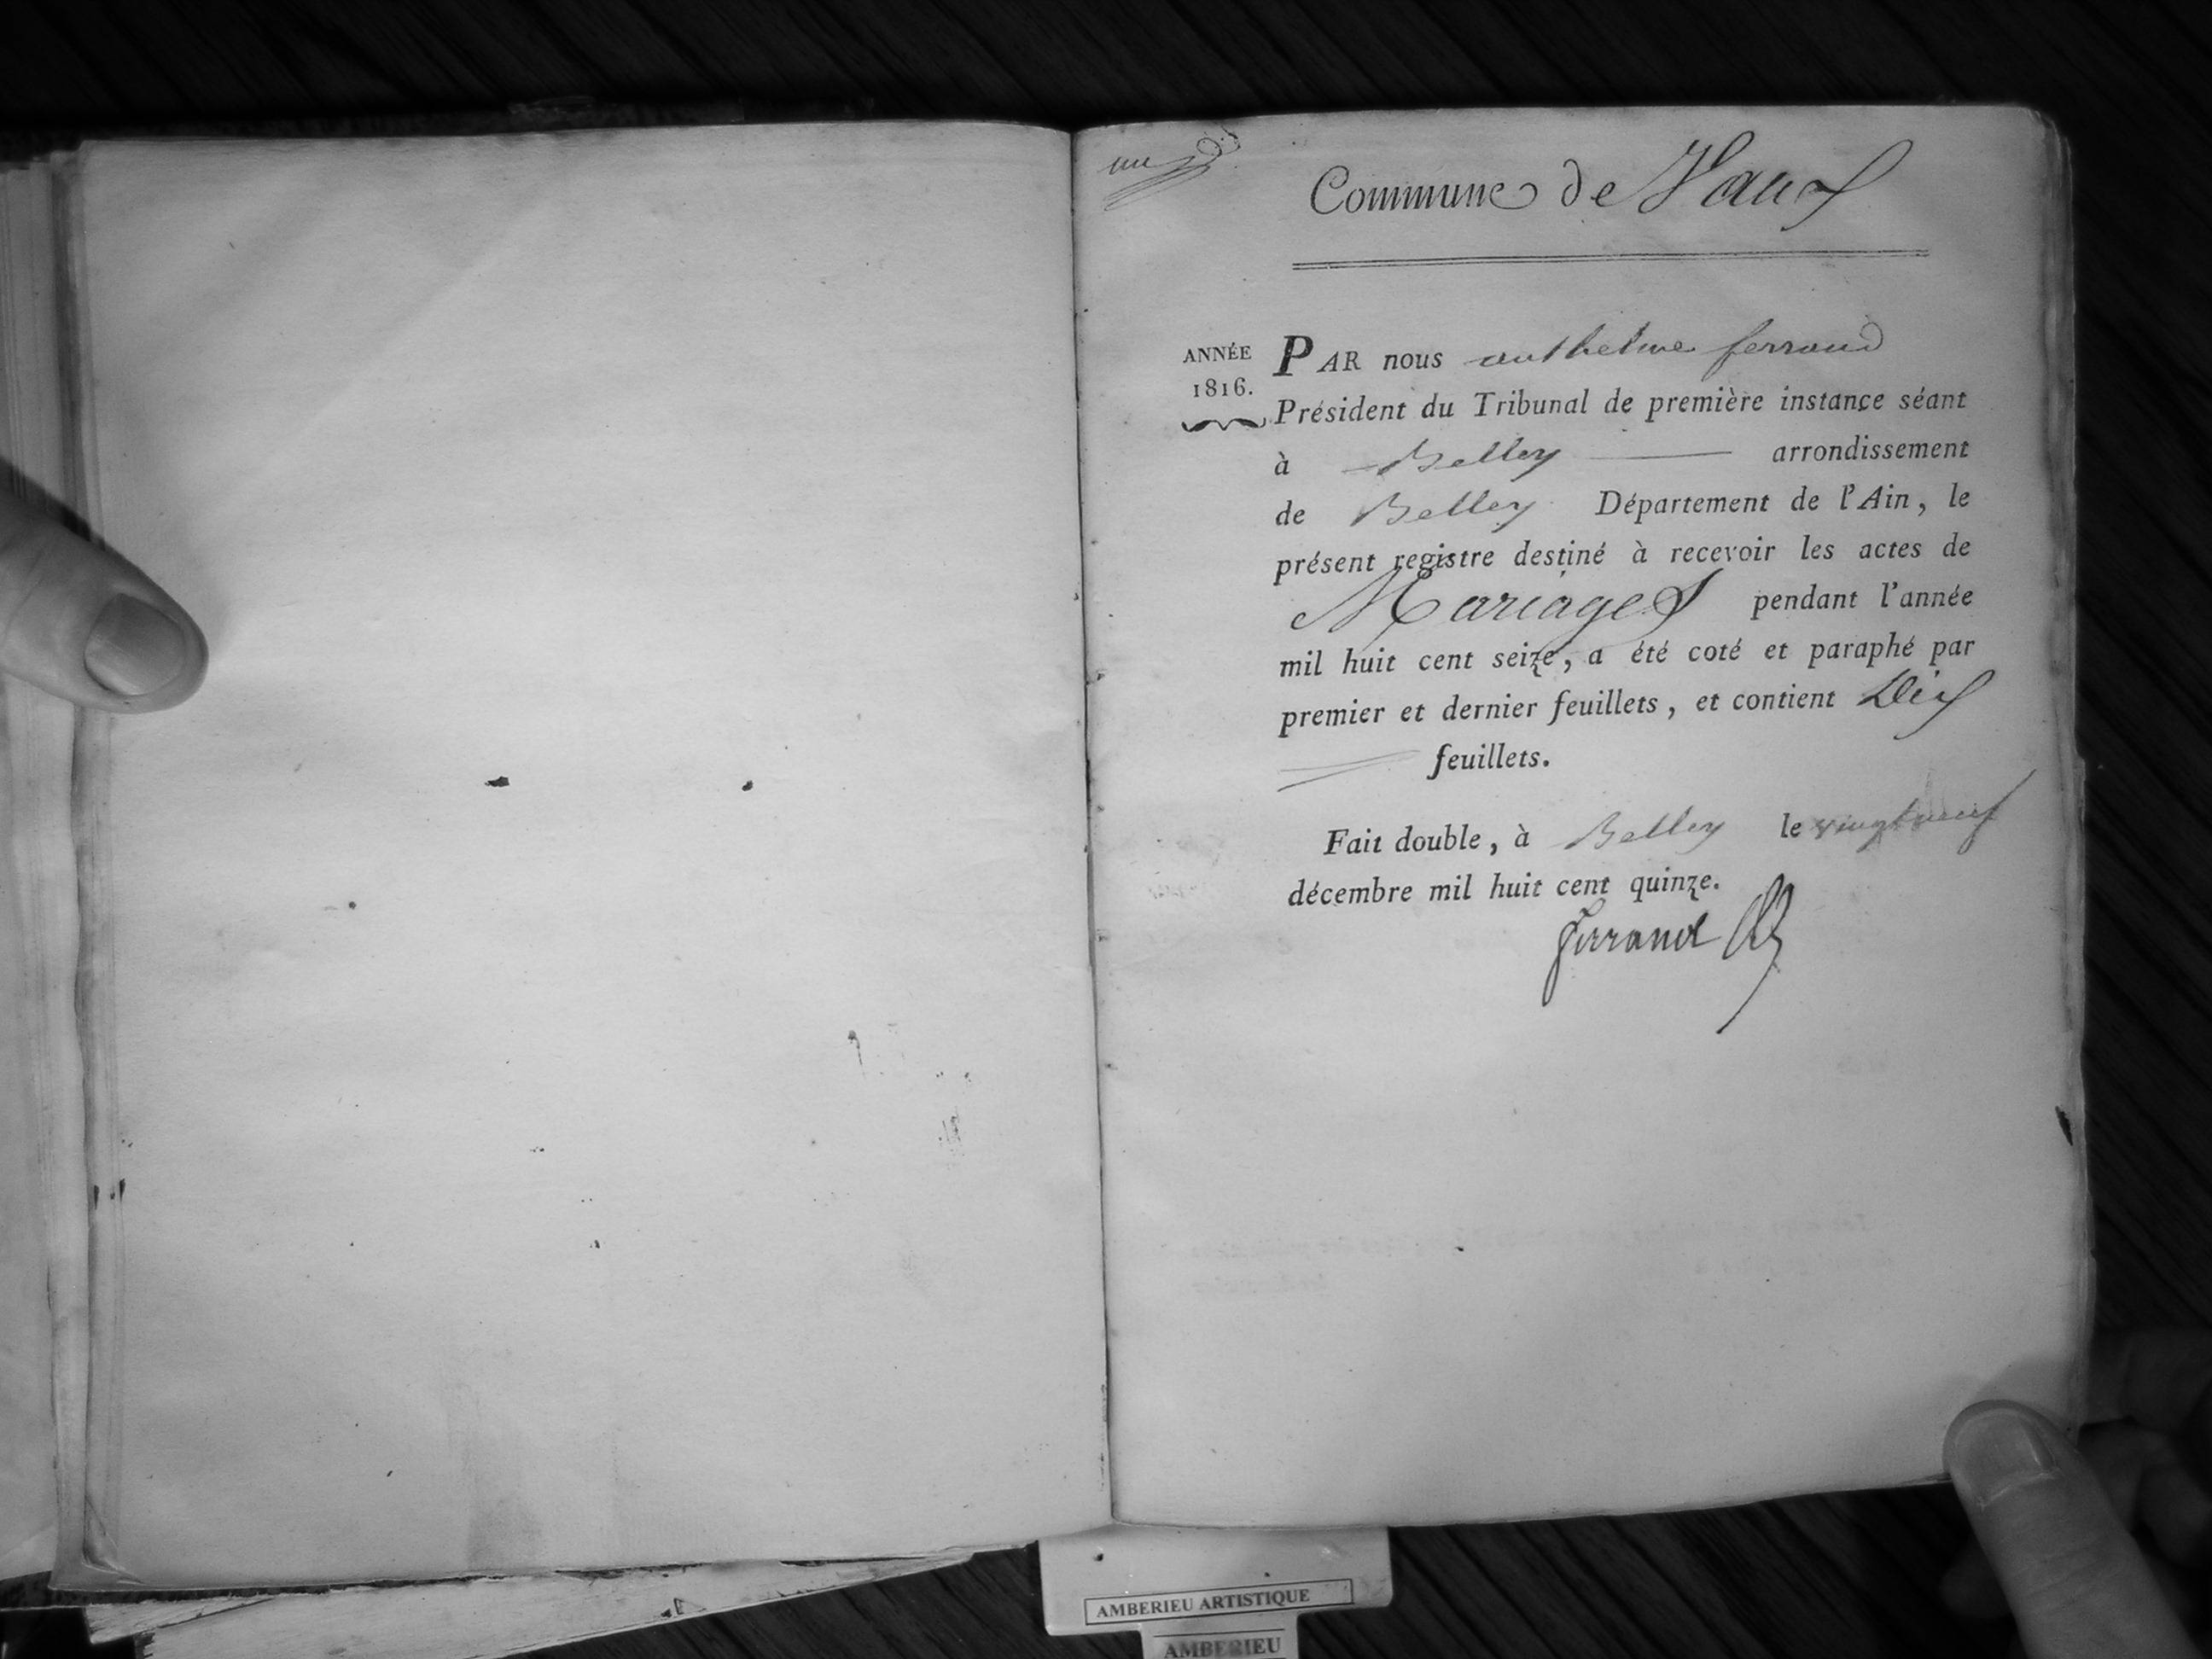 un
Commune de Vaux
ANNÉE
1816.
PAR nous anthelme ferrand
Président du Tribunal de première instance séant
à Belley arrondissement
de Belley Département de l'Ain, le
présent registre destiné à recevoir les actes de
Mariages pendant l'année
mil huit cent seize, a été coté et paraphé par
premier et dernier feuillets, et contient Dix
feuillets.
Fait double, à Belley le vingt neuf
décembre mil huit cent quinze.
ferrand
AMBERIEU ARTISTIQUE
AMBERIEU